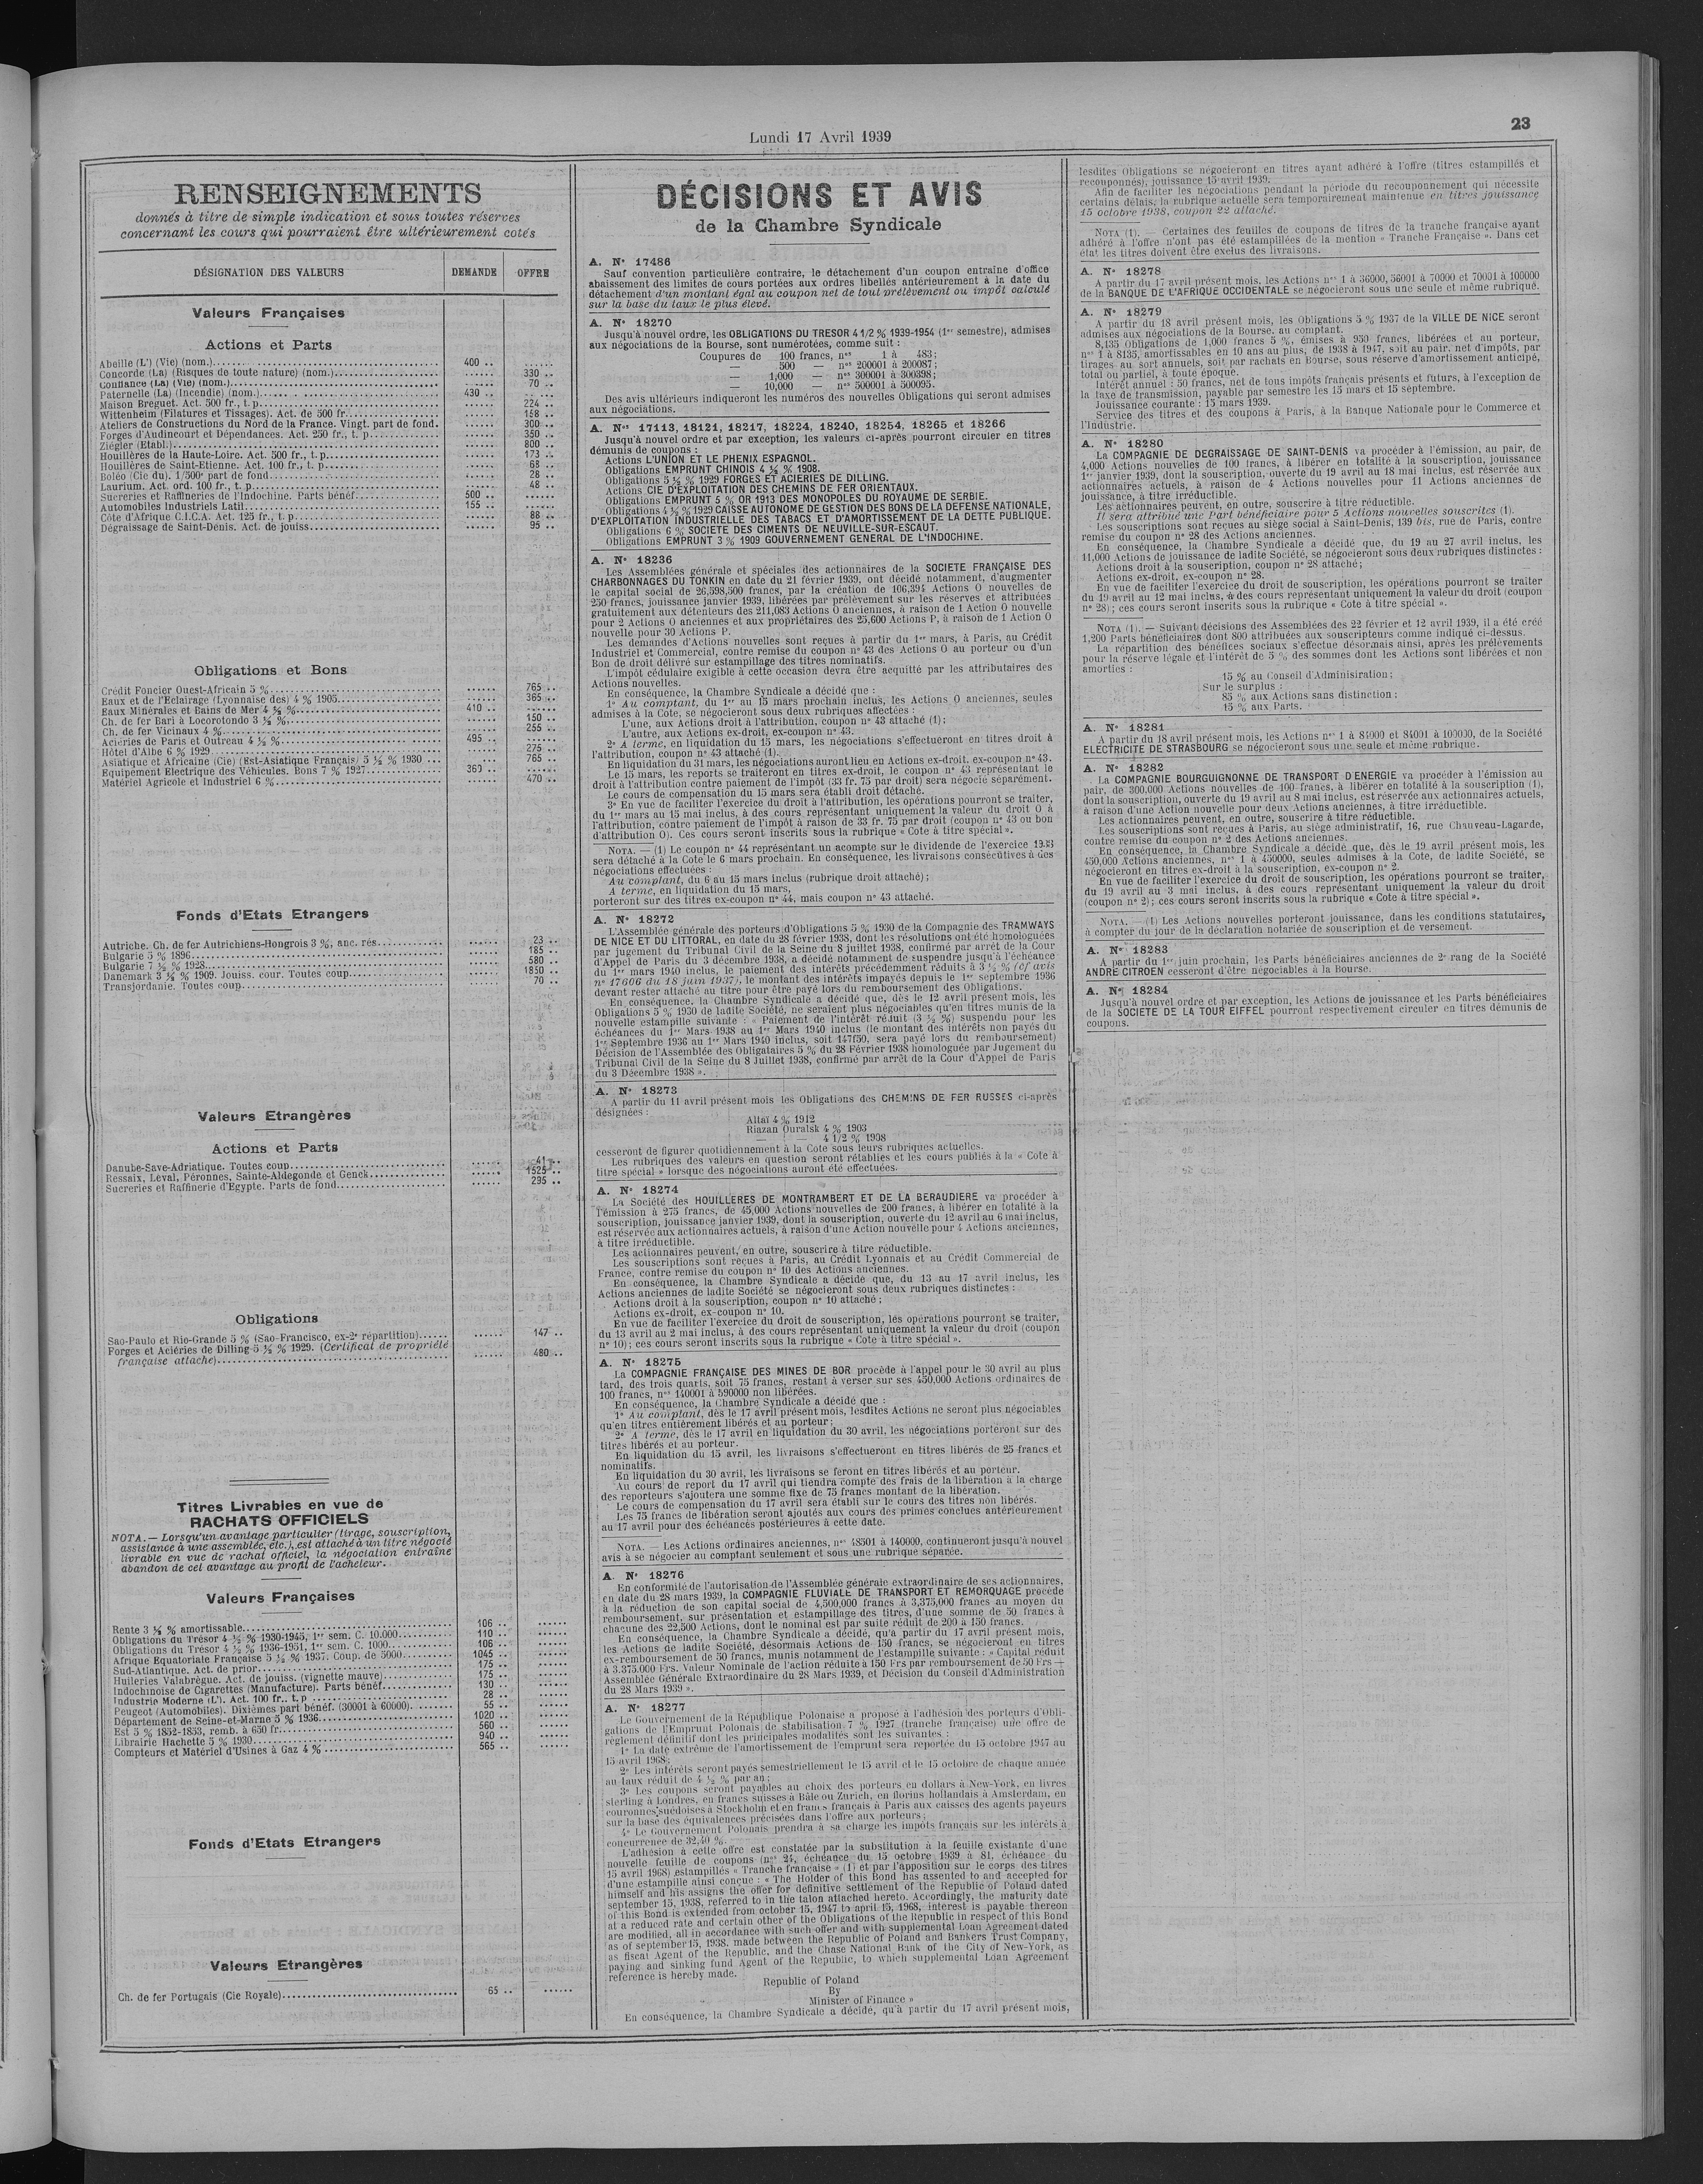 Lundi 17 Avril 1939
23
RENSEIGNEMENTS
donnés à titre de simple indication et sous toutes réserves
concernant les cours qui pourraient être ultérieurement cotés
DÉSIGNATION DES VALEURS DEMANDE OFFRE
Valeurs Françaises
Actions et Parts
Abeille (L') (Vie) (nom.) 400 .. ......
Concorde (La) (Risques de toute nature) (nom.) ...... 330 ..
Confiance (La) (Vie) (nom.) ...... 70 ..
Paternelle (La) (Incendie) (nom.) 430 .. ......
Maison Breguet. Act. 500 fr., t. p. ...... 224 ..
Wittenheim (Filatures et Tissages). Act. de 500 fr. ...... 158 ..
Ateliers de Constructions du Nord de la France. Vingt. part de fond. ...... 300 ..
Forges d'Audincourt et Dépendances. Act. 250 fr., t. p. ...... 350 ..
Ziégler (Etabl.) ...... 800 ..
Houillères de la Haute-Loire. Act. 500 fr., t. p. ...... 173 ..
Houillères de Saint-Etienne. Act. 100 fr., t. p. ...... 68 ..
Boléo (Cie du). 1/500e part de fond. ...... 28 ..
Laurium. Act. ord. 100 fr., t. p. ...... 48 ..
Sucreries et Raffineries de l'Indochine. Parts bénéf. 500 .. ......
Automobiles Industriels Latil 155 .. ......
Côte d'Afrique C.I.C.A. Act. 125 fr., t. p. ...... 88 ..
Dégraissage de Saint-Denis. Act. de jouiss. ...... 95 ..
Obligations et Bons
Crédit Foncier Ouest-Africain 5 % ...... 765 ..
Eaux et de l'Eclairage (Lyonnaise des) 4 % 1905 ...... 365 ..
Eaux Minérales et Bains de Mer 4 ½ % 410 .. ......
Ch. de fer Bari à Locorotondo 3 ½ % ...... 150 ..
Ch. de fer Vicinaux 4 % ...... 255 ..
Aciéries de Paris et Outreau 4 ½ % 495 .. ......
Hôtel d'Albe 6 % 1929 ...... 275 ..
Asiatique et Africaine (Cie) (Est-Asiatique Français) 5 ½ % 1930 ... ... 765 ..
Equipement Electrique des Véhicules. Bons 7 % 1927 369 .. ......
Matériel Agricole et Industriel 6 % ...... 470 ..
Fonds d'Etats Etrangers
Autriche. Ch. de fer Autrichiens-Hongrois 3 %, anc. rés. ...... 23 ..
Bulgarie 5 % 1896 ...... 185 ..
Bulgarie 7 ½ % 1928 ...... 580 ..
Danemark 3 ½ % 1909. Jouiss. cour. Toutes coup. ...... 1850 ..
Transjordanie. Toutes coup. ...... 70 ..
Valeurs Etrangères
Actions et Parts
Danube-Save-Adriatique. Toutes coup. ...... 41 ..
Ressaix, Leval, Péronnes, Sainte-Aldegonde et Genck ...... 1525 ..
Sucreries et Raffinerie d'Egypte. Parts de fond. ...... 295 ..
Obligations
Sao-Paulo et Rio-Grande 5 % (Sao-Francisco, ex-2e répartition) ...... 147 ..
Forges et Aciéries de Dilling 5 ½ % 1929. (Certificat de propriété
française attaché) ...... 480 ..
Titres Livrables en vue de
RACHATS OFFICIELS
NOTA. — Lorsqu'un avantage particulier (tirage, souscription,
assistance à une assemblée, etc.), est attaché à un titre négocié
livrable en vue de rachat officiel, la négociation entraîne
abandon de cet avantage au profit de l'acheteur.
Valeurs Françaises
Rente 3 ½ % amortissable 106 .. ......
Obligations du Trésor 4 ½ % 1930-1945, 1er sem. C. 10.000 110 .. ......
Obligations du Trésor 4 ½ % 1936-1951, 1er sem. C. 1000 106 .. ......
Afrique Equatoriale Française 5 ½ % 1937. Coup. de 5000 1045 .. ......
Sud-Atlantique. Act. de prior. 175 .. ......
Huileries Valabrègue. Act. de jouiss. (vignette mauve) 175 .. ......
Indochinoise de Cigarettes (Manufacture). Parts bénéf. 130 .. ......
Industrie Moderne (L'). Act. 100 fr., t. p 28 .. ......
Peugeot (Automobiles). Dixièmes part bénéf. (30001 à 60000). 55 .. ......
Département de Seine-et-Marne 5 % 1936 1020 .. ......
Est 5 % 1852-1853, remb. à 650 fr. 560 .. ......
Librairie Hachette 5 % 1930 940 .. ......
Compteurs et Matériel d'Usines à Gaz 4 % 565 .. ......
Fonds d'Etats Etrangers
Valeurs Etrangères
Ch. de fer Portugais (Cie Royale) 65 .. ......
DÉCISIONS ET AVIS
de la Chambre Syndicale
A. N° 17486
Sauf convention particulière contraire, le détachement d'un coupon entraîne d'office
abaissement des limites de cours portées aux ordres libellés antérieurement à la date du
détachement d'un montant égal au coupon net de tout prélèvement ou impôt calculé
sur la base du taux le plus élevé.
A. N° 18270
Jusqu'à nouvel ordre, les OBLIGATIONS DU TRESOR 4 1/2 % 1939-1954 (1er semestre), admises
aux négociations de la Bourse, sont numérotées, comme suit :
Coupures de 100 francs, nos 1 à 483;
— 500 — nos 200001 à 200087;
— 1,000 — nos 300001 à 300398;
— 10,000 — nos 500001 à 500095.
Des avis ultérieurs indiqueront les numéros des nouvelles Obligations qui seront admises
aux négociations.
A. Nos 17113, 18121, 18217, 18224, 18240, 18254, 18265 et 18266
Jusqu'à nouvel ordre et par exception, les valeurs ci-après pourront circuler en titres
démunis de coupons :
Actions L'UNION ET LE PHENIX ESPAGNOL.
Obligations EMPRUNT CHINOIS 4 ½ % 1908.
Obligations 5 ½ % 1929 FORGES ET ACIERIES DE DILLING.
Actions CIE D'EXPLOITATION DES CHEMINS DE FER ORIENTAUX.
Obligations EMPRUNT 5 % OR 1913 DES MONOPOLES DU ROYAUME DE SERBIE.
Obligations 4 ½ % 1929 CAISSE AUTONOME DE GESTION DES BONS DE LA DEFENSE NATIONALE,
D'EXPLOITATION INDUSTRIELLE DES TABACS ET D'AMORTISSEMENT DE LA DETTE PUBLIQUE.
Obligations 6 % SOCIETE DES CIMENTS DE NEUVILLE-SUR-ESCAUT.
Obligations EMPRUNT 3 % 1909 GOUVERNEMENT GENERAL DE L'INDOCHINE.
A. N° 18236
Les Assemblées générale et spéciales des actionnaires de la SOCIETE FRANÇAISE DES
CHARBONNAGES DU TONKIN en date du 21 février 1939, ont décidé notamment, d'augmenter
le capital social de 26,598,500 francs, par la création de 106,394 Actions O nouvelles de
250 francs, jouissance janvier 1939, libérées par prélèvement sur les réserves et attribuées
gratuitement aux détenteurs des 211,083 Actions O anciennes, à raison de 1 Action O nouvelle
pour 2 Actions O anciennes et aux propriétaires des 25,600 Actions P, à raison de 1 Action O
nouvelle pour 30 Actions P.
Les demandes d'Actions nouvelles sont reçues à partir du 1er mars, à Paris, au Crédit
Industriel et Commercial, contre remise du coupon n° 43 des Actions O au porteur ou d'un
Bon de droit délivré sur estampillage des titres nominatifs.
L'impôt cédulaire exigible à cette occasion devra être acquitté par les attributaires des
Actions nouvelles.
En conséquence, la Chambre Syndicale a décidé que :
1° Au comptant, du 1er au 15 mars prochain inclus, les Actions O anciennes, seules
admises à la Cote, se négocieront sous deux rubriques affectées :
L'une, aux Actions droit à l'attribution, coupon n° 43 attaché (1);
L'autre, aux Actions ex-droit, ex-coupon n° 43.
2° A terme, en liquidation du 15 mars, les négociations s'effectueront en titres droit à
l'attribution, coupon n° 43 attaché (1).
En liquidation du 31 mars, les négociations auront lieu en Actions ex-droit, ex-coupon n° 43.
Le 15 mars, les reports se traiteront en titres ex-droit, le coupon n° 43 représentant le
droit à l'attribution contre paiement de l'impôt (33 fr. 75 par droit) sera négocié séparément.
Le cours de compensation du 15 mars sera établi droit détaché.
3° En vue de faciliter l'exercice du droit à l'attribution, les opérations pourront se traiter,
du 1er mars au 15 mai inclus, à des cours représentant uniquement la valeur du droit O à
l'attribution, contre paiement de l'impôt à raison de 33 fr. 75 par droit (coupon n° 43 ou bon
d'attribution O). Ces cours seront inscrits sous la rubrique « Cote à titre spécial ».
NOTA. — (1) Le coupon n° 44 représentant un acompte sur le dividende de l'exercice
sera détaché à la Cote le 6 mars prochain. En conséquence, les livraisons consécutives à des
négociations effectuées :
Au comptant, du 6 au 15 mars inclus (rubrique droit attaché);
A terme, en liquidation du 15 mars,
porteront sur des titres ex-coupon n° 44, mais coupon n° 43 attaché.
A. N° 18272
L'Assemblée générale des porteurs d'Obligations 5 % 1930 de la Compagnie des TRAMWAYS
DE NICE ET DU LITTORAL, en date du 28 février 1938, dont les résolutions ont été homologuées
par jugement du Tribunal Civil de la Seine du 8 juillet 1938, confirmé par arrêt de la Cour
d'Appel de Paris du 3 décembre 1938, a décidé notamment de suspendre jusqu'à l'échéance
du 1er mars 1940 inclus, le paiement des intérêts précédemment réduits à 3 ½ % (cf avis
n° 17606 du 18 juin 1937), le montant des intérêts impayés depuis le 1er septembre 1936
devant rester attaché au titre pour être payé lors du remboursement des Obligations.
En conséquence, la Chambre Syndicale a décidé que, dès le 12 avril présent mois, les
Obligations 5 % 1930 de ladite Société, ne seraient plus négociables qu'en titres munis de la
nouvelle estampille suivante : « Paiement de l'intérêt réduit (3 ½ %) suspendu pour les
échéances du 1er Mars 1938 au 1er Mars 1940 inclus (le montant des intérêts non payés du
1er Septembre 1936 au 1er Mars 1940 inclus, soit 147f50, sera payé lors du remboursement)
Décision de l'Assemblée des Obligataires 5 % du 28 Février 1938 homologuée par Jugement du
Tribunal Civil de la Seine du 8 Juillet 1938, confirmé par arrêt de la Cour d'Appel de Paris
du 3 Décembre 1938 ».
A. N° 18273
A partir du 11 avril présent mois les Obligations des CHEMINS DE FER RUSSES ci-après
désignées :
Altaï 4 % 1912
Riazan Ouralsk 4 % 1903
— — 4 1/2 % 1908
cesseront de figurer quotidiennement à la Cote sous leurs rubriques actuelles.
Les rubriques des valeurs en question seront rétablies et les cours publiés à la « Cote à
titre spécial » lorsque des négociations auront été effectuées.
A. N° 18274
La Société des HOUILLERES DE MONTRAMBERT ET DE LA BERAUDIERE va procéder à
l'émission à 275 francs, de 45,000 Actions nouvelles de 200 francs, à libérer en totalité à la
souscription, jouissance janvier 1939, dont la souscription, ouverte du 12 avril au 6 mai inclus,
est réservée aux actionnaires actuels, à raison d'une Action nouvelle pour 4 Actions anciennes,
à titre irréductible.
Les actionnaires peuvent, en outre, souscrire à titre réductible.
Les souscriptions sont reçues à Paris, au Crédit Lyonnais et au Crédit Commercial de
France, contre remise du coupon n° 10 des Actions anciennes.
En conséquence, la Chambre Syndicale a décidé que, du 13 au 17 avril inclus, les
Actions anciennes de ladite Société se négocieront sous deux rubriques distinctes :
Actions droit à la souscription, coupon n° 10 attaché;
Actions ex-droit, ex-coupon n° 10.
En vue de faciliter l'exercice du droit de souscription, les opérations pourront se traiter,
du 13 avril au 2 mai inclus, à des cours représentant uniquement la valeur du droit (coupon
n° 10); ces cours seront inscrits sous la rubrique « Cote à titre spécial ».
A. N° 18275
La COMPAGNIE FRANÇAISE DES MINES DE BOR procède à l'appel pour le 30 avril au plus
tard, des trois quarts, soit 75 francs, restant à verser sur ses 450,000 Actions ordinaires de
100 francs, nos 140001 à 590000 non libérées.
En conséquence, la Chambre Syndicale a décidé que :
1° Au comptant, dès le 17 avril présent mois, lesdites Actions ne seront plus négociables
qu'en titres entièrement libérés et au porteur;
2° A terme, dès le 17 avril en liquidation du 30 avril, les négociations porteront sur des
titres libérés et au porteur.
En liquidation du 15 avril, les livraisons s'effectueront en titres libérés de 25 francs et
nominatifs.
En liquidation du 30 avril, les livraisons se feront en titres libérés et au porteur.
Au cours de report du 17 avril qui tiendra compte des frais de la libération à la charge
des reporteurs s'ajoutera une somme fixe de 75 francs montant de la libération.
Le cours de compensation du 17 avril sera établi sur le cours des titres non libérés.
Les 75 francs de libération seront ajoutés aux cours des primes conclues antérieurement
au 17 avril pour des échéances postérieures à cette date.
NOTA. — Les Actions ordinaires anciennes, nos 48501 à 140000, continueront jusqu'à nouvel
avis à se négocier au comptant seulement et sous une rubrique séparée.
A. N° 18276
En conformité de l'autorisation de l'Assemblée générale extraordinaire de ses actionnaires,
en date du 28 mars 1939, la COMPAGNIE FLUVIALE DE TRANSPORT ET REMORQUAGE procède
à la réduction de son capital social de 4,500,000 francs à 3,375,000 francs au moyen du
remboursement, sur présentation et estampillage des titres, d'une somme de 50 francs à
chacune des 22,500 Actions, dont le nominal est par suite réduit de 200 à 150 francs.
En conséquence, la Chambre Syndicale a décidé, qu'à partir du 17 avril présent mois,
les Actions de ladite Société, désormais Actions de 150 francs, se négocieront en titres
ex-remboursement de 50 francs, munis notamment de l'estampille suivante : « Capital réduit
à 3.375.000 Frs. Valeur Nominale de l'action réduite à 150 Frs par remboursement de 50 Frs —
Assemblée Générale Extraordinaire du 28 Mars 1939, et Décision du Conseil d'Administration
du 28 Mars 1939 ».
A. N° 18277
Le Gouvernement de la République Polonaise a proposé à l'adhésion des porteurs d'Obli-
gations de l'Emprunt Polonais de stabilisation 7 % 1927 (tranche française) une offre de
règlement définitif dont les principales modalités sont les suivantes :
1° La date extrême de l'amortissement de l'emprunt sera reportée du 15 octobre 1947 au
15 avril 1968;
2° Les intérêts seront payés semestriellement le 15 avril et le 15 octobre de chaque année
au taux réduit de 4 ½ % par an;
3° Les coupons seront payables au choix des porteurs en dollars à New-York, en livres
sterling à Londres, en francs suisses à Bâle ou Zurich, en florins hollandais à Amsterdam, en
couronnes suédoises à Stockholm et en francs français à Paris aux caisses des agents payeurs
sur la base des équivalences précisées dans l'offre aux porteurs;
4° Le Gouvernement Polonais prendra à sa charge les impôts français sur les intérêts à
concurrence de 32,40 %.
L'adhésion à cette offre est constatée par la substitution à la feuille existante d'une
nouvelle feuille de coupons (nos 24, échéance du 15 octobre 1939 à 81, échéance du
15 avril 1968) estampillés « Tranche française » (1) et par l'apposition sur le corps des titres
d'une estampille ainsi conçue : « The Holder of this Bond has assented to and accepted for
himself and his assigns the offer for definitive settlement of the Republic of Poland dated
september 15, 1938, referred to in the talon attached hereto. Accordingly, the maturity date
of this Bond is extended from october 15, 1947 to april 15, 1968, interest is payable thereon
at a reduced rate and certain other of the Obligations of the Republic in respect of this Bond
are modified, all in accordance with such offer and with supplemental Loan Agreement dated
as of september 15, 1938, made between the Republic of Poland and Bankers Trust Company,
as fiscal Agent of the Republic, and the Chase National Bank of the City of New-York, as
paying and sinking fund Agent of the Republic, to which supplemental Loan Agreement
reference is hereby made.
Republic of Poland
By
Minister of Finance »
En conséquence, la Chambre Syndicale a décidé, qu'à partir du 17 avril présent mois,
lesdites Obligations se négocieront en titres ayant adhéré à l'offre (titres estampillés et
recouponnés), jouissance 15 avril 1939.
Afin de faciliter les négociations pendant la période du recouponnement qui nécessite
certains délais, la rubrique actuelle sera temporairement maintenue en titres jouissance
15 octobre 1938, coupon 22 attaché.
NOTA (1). — Certaines des feuilles de coupons de titres de la tranche française ayant
adhéré à l'offre n'ont pas été estampillées de la mention « Tranche Française ». Dans cet
état les titres doivent être exclus des livraisons.
A. N° 18278
A partir du 17 avril présent mois, les Actions nos 1 à 36000, 56001 à 70000 et 70001 à 100000
de la BANQUE DE L'AFRIQUE OCCIDENTALE se négocieront sous une seule et même rubrique.
A. N° 18279
A partir du 18 avril présent mois, les Obligations 5 % 1937 de la VILLE DE NICE seront
admises aux négociations de la Bourse, au comptant.
8,135 Obligations de 1,000 francs 5 %, émises à 950 francs, libérées et au porteur,
nos 1 à 8135, amortissables en 10 ans au plus, de 1938 à 1947, soit au pair, net d'impôts, par
tirages au sort annuels, soit par rachats en Bourse, sous réserve d'amortissement anticipé,
total ou partiel, à toute époque.
Intérêt annuel : 50 francs, net de tous impôts français présents et futurs, à l'exception de
la taxe de transmission, payable par semestre les 15 mars et 15 septembre.
Jouissance courante : 15 mars 1939.
Service des titres et des coupons à Paris, à la Banque Nationale pour le Commerce et
l'Industrie.
A. N° 18280
La COMPAGNIE DE DEGRAISSAGE DE SAINT-DENIS va procéder à l'émission, au pair, de
4,000 Actions nouvelles de 100 francs, à libérer en totalité à la souscription, jouissance
1er janvier 1939, dont la souscription, ouverte du 19 avril au 18 mai inclus, est réservée aux
actionnaires actuels, à raison de 4 Actions nouvelles pour 11 Actions anciennes de
jouissance, à titre irréductible.
Les actionnaires peuvent, en outre, souscrire à titre réductible.
Il sera attribué une Part bénéficiaire pour 5 Actions nouvelles souscrites (1).
Les souscriptions sont reçues au siège social à Saint-Denis, 139 bis, rue de Paris, contre
remise du coupon n° 28 des Actions anciennes.
En conséquence, la Chambre Syndicale a décidé que, du 19 au 27 avril inclus, les
11,000 Actions de jouissance de ladite Société, se négocieront sous deux rubriques distinctes :
Actions droit à la souscription, coupon n° 28 attaché;
Actions ex-droit, ex-coupon n° 28.
En vue de faciliter l'exercice du droit de souscription, les opérations pourront se traiter
du 19 avril au 12 mai inclus, à des cours représentant uniquement la valeur du droit (coupon
n° 28); ces cours seront inscrits sous la rubrique « Cote à titre spécial ».
NOTA (1). — Suivant décisions des Assemblées des 22 février et 12 avril 1939, il a été créé
1,200 Parts bénéficiaires dont 800 attribuées aux souscripteurs comme indiqué ci-dessus.
La répartition des bénéfices sociaux s'effectue désormais ainsi, après les prélèvements
pour la réserve légale et l'intérêt de 5 % des sommes dont les Actions sont libérées et non
amorties :
15 % au Conseil d'Administration;
Sur le surplus :
85 % aux Actions sans distinction;
15 % aux Parts.
A. N° 18281
A partir du 18 avril présent mois, les Actions nos 1 à 84000 et 84001 à 100000, de la Société
ELECTRICITE DE STRASBOURG se négocieront sous une seule et même rubrique.
A. N° 18282
La COMPAGNIE BOURGUIGNONNE DE TRANSPORT D'ENERGIE va procéder à l'émission au
pair, de 300,000 Actions nouvelles de 100 francs, à libérer en totalité à la souscription (1),
dont la souscription, ouverte du 19 avril au 8 mai inclus, est réservée aux actionnaires actuels,
à raison d'une Action nouvelle pour deux Actions anciennes, à titre irréductible.
Les actionnaires peuvent, en outre, souscrire à titre réductible.
Les souscriptions sont reçues à Paris, au siège administratif, 16, rue Chauveau-Lagarde,
contre remise du coupon n° 2 des Actions anciennes.
En conséquence, la Chambre Syndicale a décidé que, dès le 19 avril présent mois, les
450,000 Actions anciennes, nos 1 à 450000, seules admises à la Cote, de ladite Société, se
négocieront en titres ex-droit à la souscription, ex-coupon n° 2.
En vue de faciliter l'exercice du droit de souscription, les opérations pourront se traiter,
du 19 avril au 3 mai inclus, à des cours représentant uniquement la valeur du droit
(coupon n° 2); ces cours seront inscrits sous la rubrique « Cote à titre spécial ».
NOTA. — (1) Les Actions nouvelles porteront jouissance, dans les conditions statutaires,
à compter du jour de la déclaration notariée de souscription et de versement.
A. N° 18283
A partir du 1er juin prochain, les Parts bénéficiaires anciennes de 2e rang de la Société
ANDRE CITROEN cesseront d'être négociables à la Bourse.
A. N° 18284
Jusqu'à nouvel ordre et par exception, les Actions de jouissance et les Parts bénéficiaires
de la SOCIETE DE LA TOUR EIFFEL pourront respectivement circuler en titres démunis de
coupons.